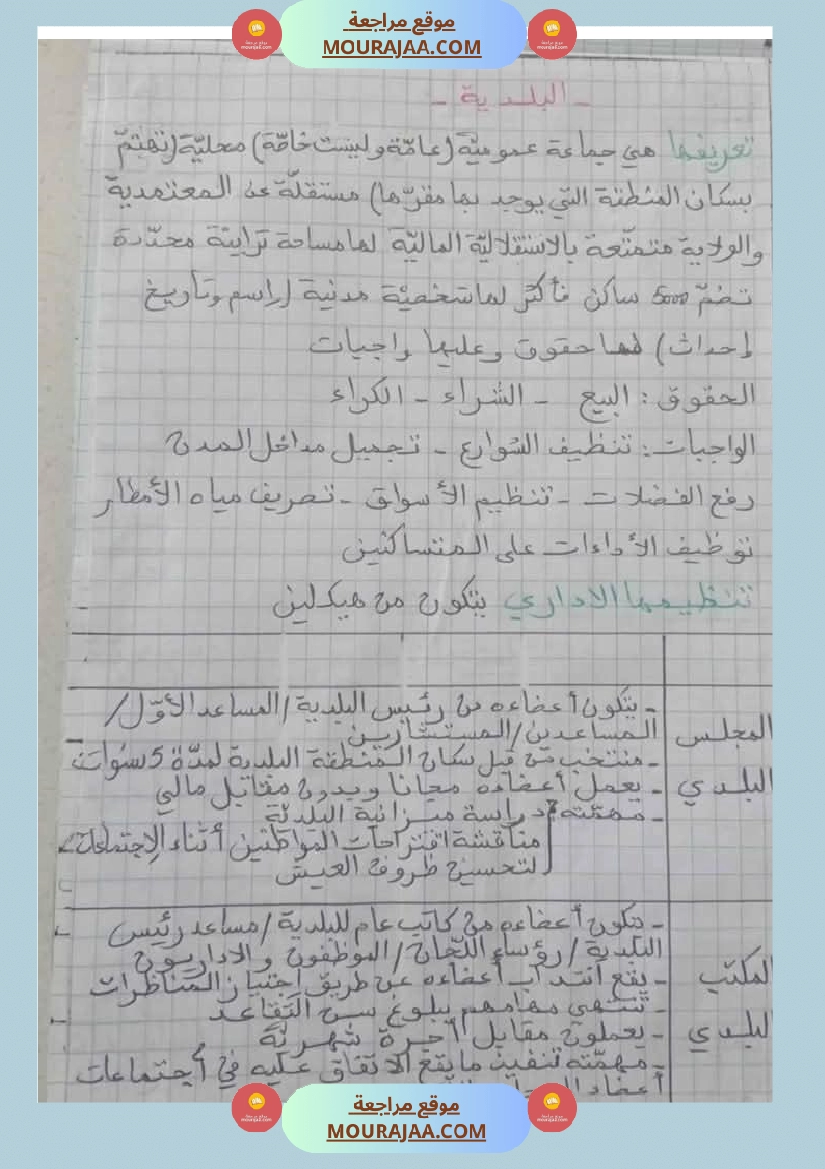 موقع مراجعة
MOURAJAA.COM
- البلدية -
تعريفها هي جماعة عموميّة (عامّة وليست خاصّة) محليّة (تهتمّ
بسكان المنطقة التي يوجد بها مقرّها) مستقلّة عن المعتمدية
والولاية متمتّعة بالاستقلاليّة الماليّة لها مساحة ترابيّة محدّدة
تضمّ 5000 ساكن فأكثر لها شخصيّة مدنية (اسم وتاريخ
إحداث) لها حقوق وعليها واجبات
الحقوق : البيع - الشراء - الكراء
الواجبات : تنظيف الشوارع - تجميل مداخل المدن
رفع الفضلات - تنظيم الأسواق - تصريف مياه الأمطار
توظيف الأداءات على المتساكنين
تنظيمها الاداري يتكون من هيكلين
المجلس البلدي
- يتكون أعضاءه من رئيس البلدية / المساعد الأوّل /
المساعدين / المستشارين
- منتخب من قبل سكان المنطقة البلدية لمدّة 5 سنوات
- يعمل أعضاءه مجانا وبدون مقابل مالي
- مهمّته دراسة ميزانية البلديّة
مناقشة اقتراحات المواطنين أثناء الإجتماعات
لتحسين ظروف العيش
المكتب البلدي
- يتكون أعضاءه من كاتب عام للبلدية / مساعد رئيس
البلدية / رؤساء اللّجان / الموظفون و الاداريون
- يقع انتداب أعضاءه عن طريق اجتياز المناظرات
- تنتهي مهامهم ببلوغ سن التّقاعد
- يعملون مقابل أجرة شهريّة
- مهمّته تنفيذ ما يقع الاتفاق عليه في أجتماعات
أعضاء
موقع مراجعة
MOURAJAA.COM